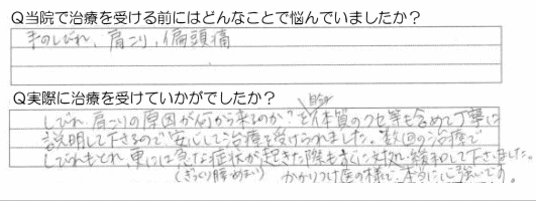 Q当院で治療を受ける前にはどんなことで悩んでいましたか?
手のしびれ、肩こり、偏頭痛
Q実際に治療を受けていかがでしたか?
自分
しびれ、肩こりの原因が何から来るのか?を体質のクセ等も含めて丁寧に
説明して下さるので安心して治療を受けられました。数回の治療で
しびれもとれ、更には急な症状が起きた際もすぐに対処・緩和して下さいました。
(ぎっくり腰、めまい) かかりつけ医の様で、本当に心強いです。